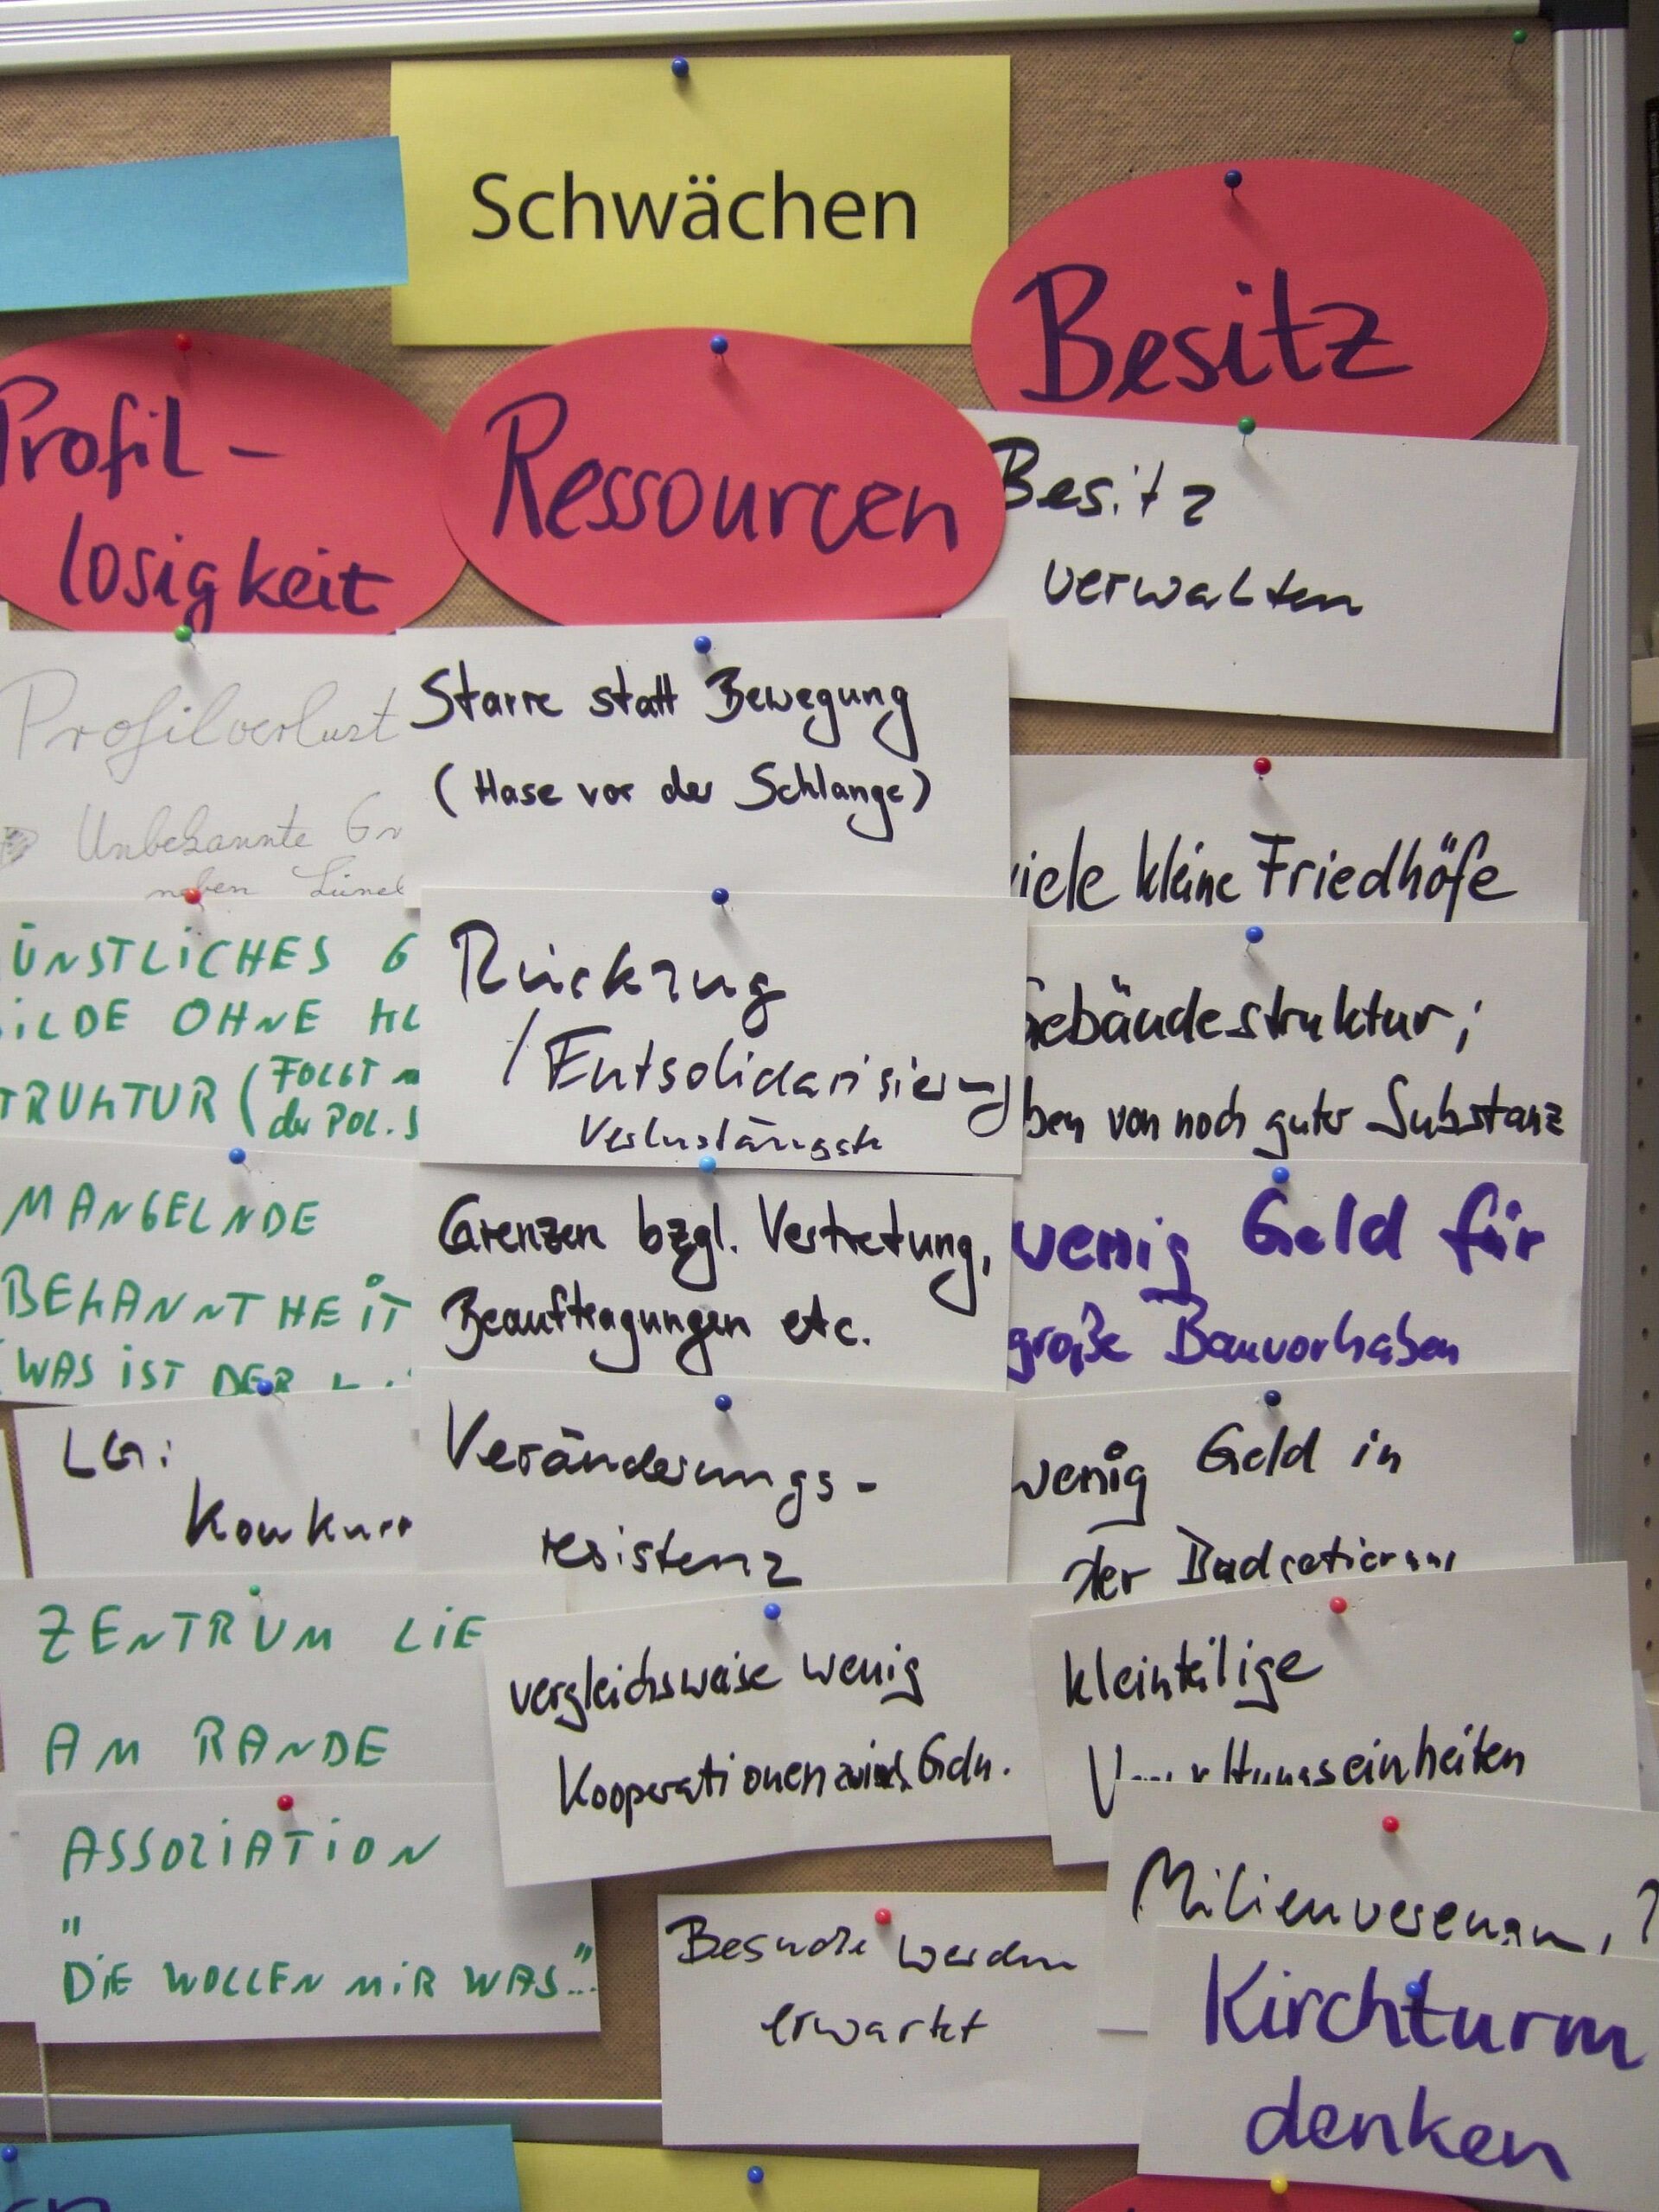 Schwächen
Profil-
losigkeit
Profilverlust
Unbekannte
neben
ÜNSTLICHES G
ILDE OHNE
TRUKTUR (FOLGT
der POL. S
MANGELNDE
BEKANNTHEIT
(WAS IST DER
LG:
Konkurr
ZENTRUM LIE
AM RANDE
ASSOZIATION
"
DIE WOLLEN MIR WAS"...
Ressourcen
Starre statt Bewegung
(Hase vor der Schlange)
Rückzug
/Entsolidarisierung
Verlustängste
Grenzen bzgl. Vertretung,
Beauftragungen etc.
Veränderungs-
resistenz
vergleichsweise wenig
Kooperationen zwisch. Gdn.
Besuche werden
erwartet
Besitz
Besitz
verwalten
viele kleine Friedhöfe
Gebäudestruktur;
ben von noch guter Substanz
wenig Geld für
große Bauvorhaben
wenig Geld in
der Budgetierung
kleinteilige
Verwaltungseinheiten
Milieuverengung
Kirchturm
denken